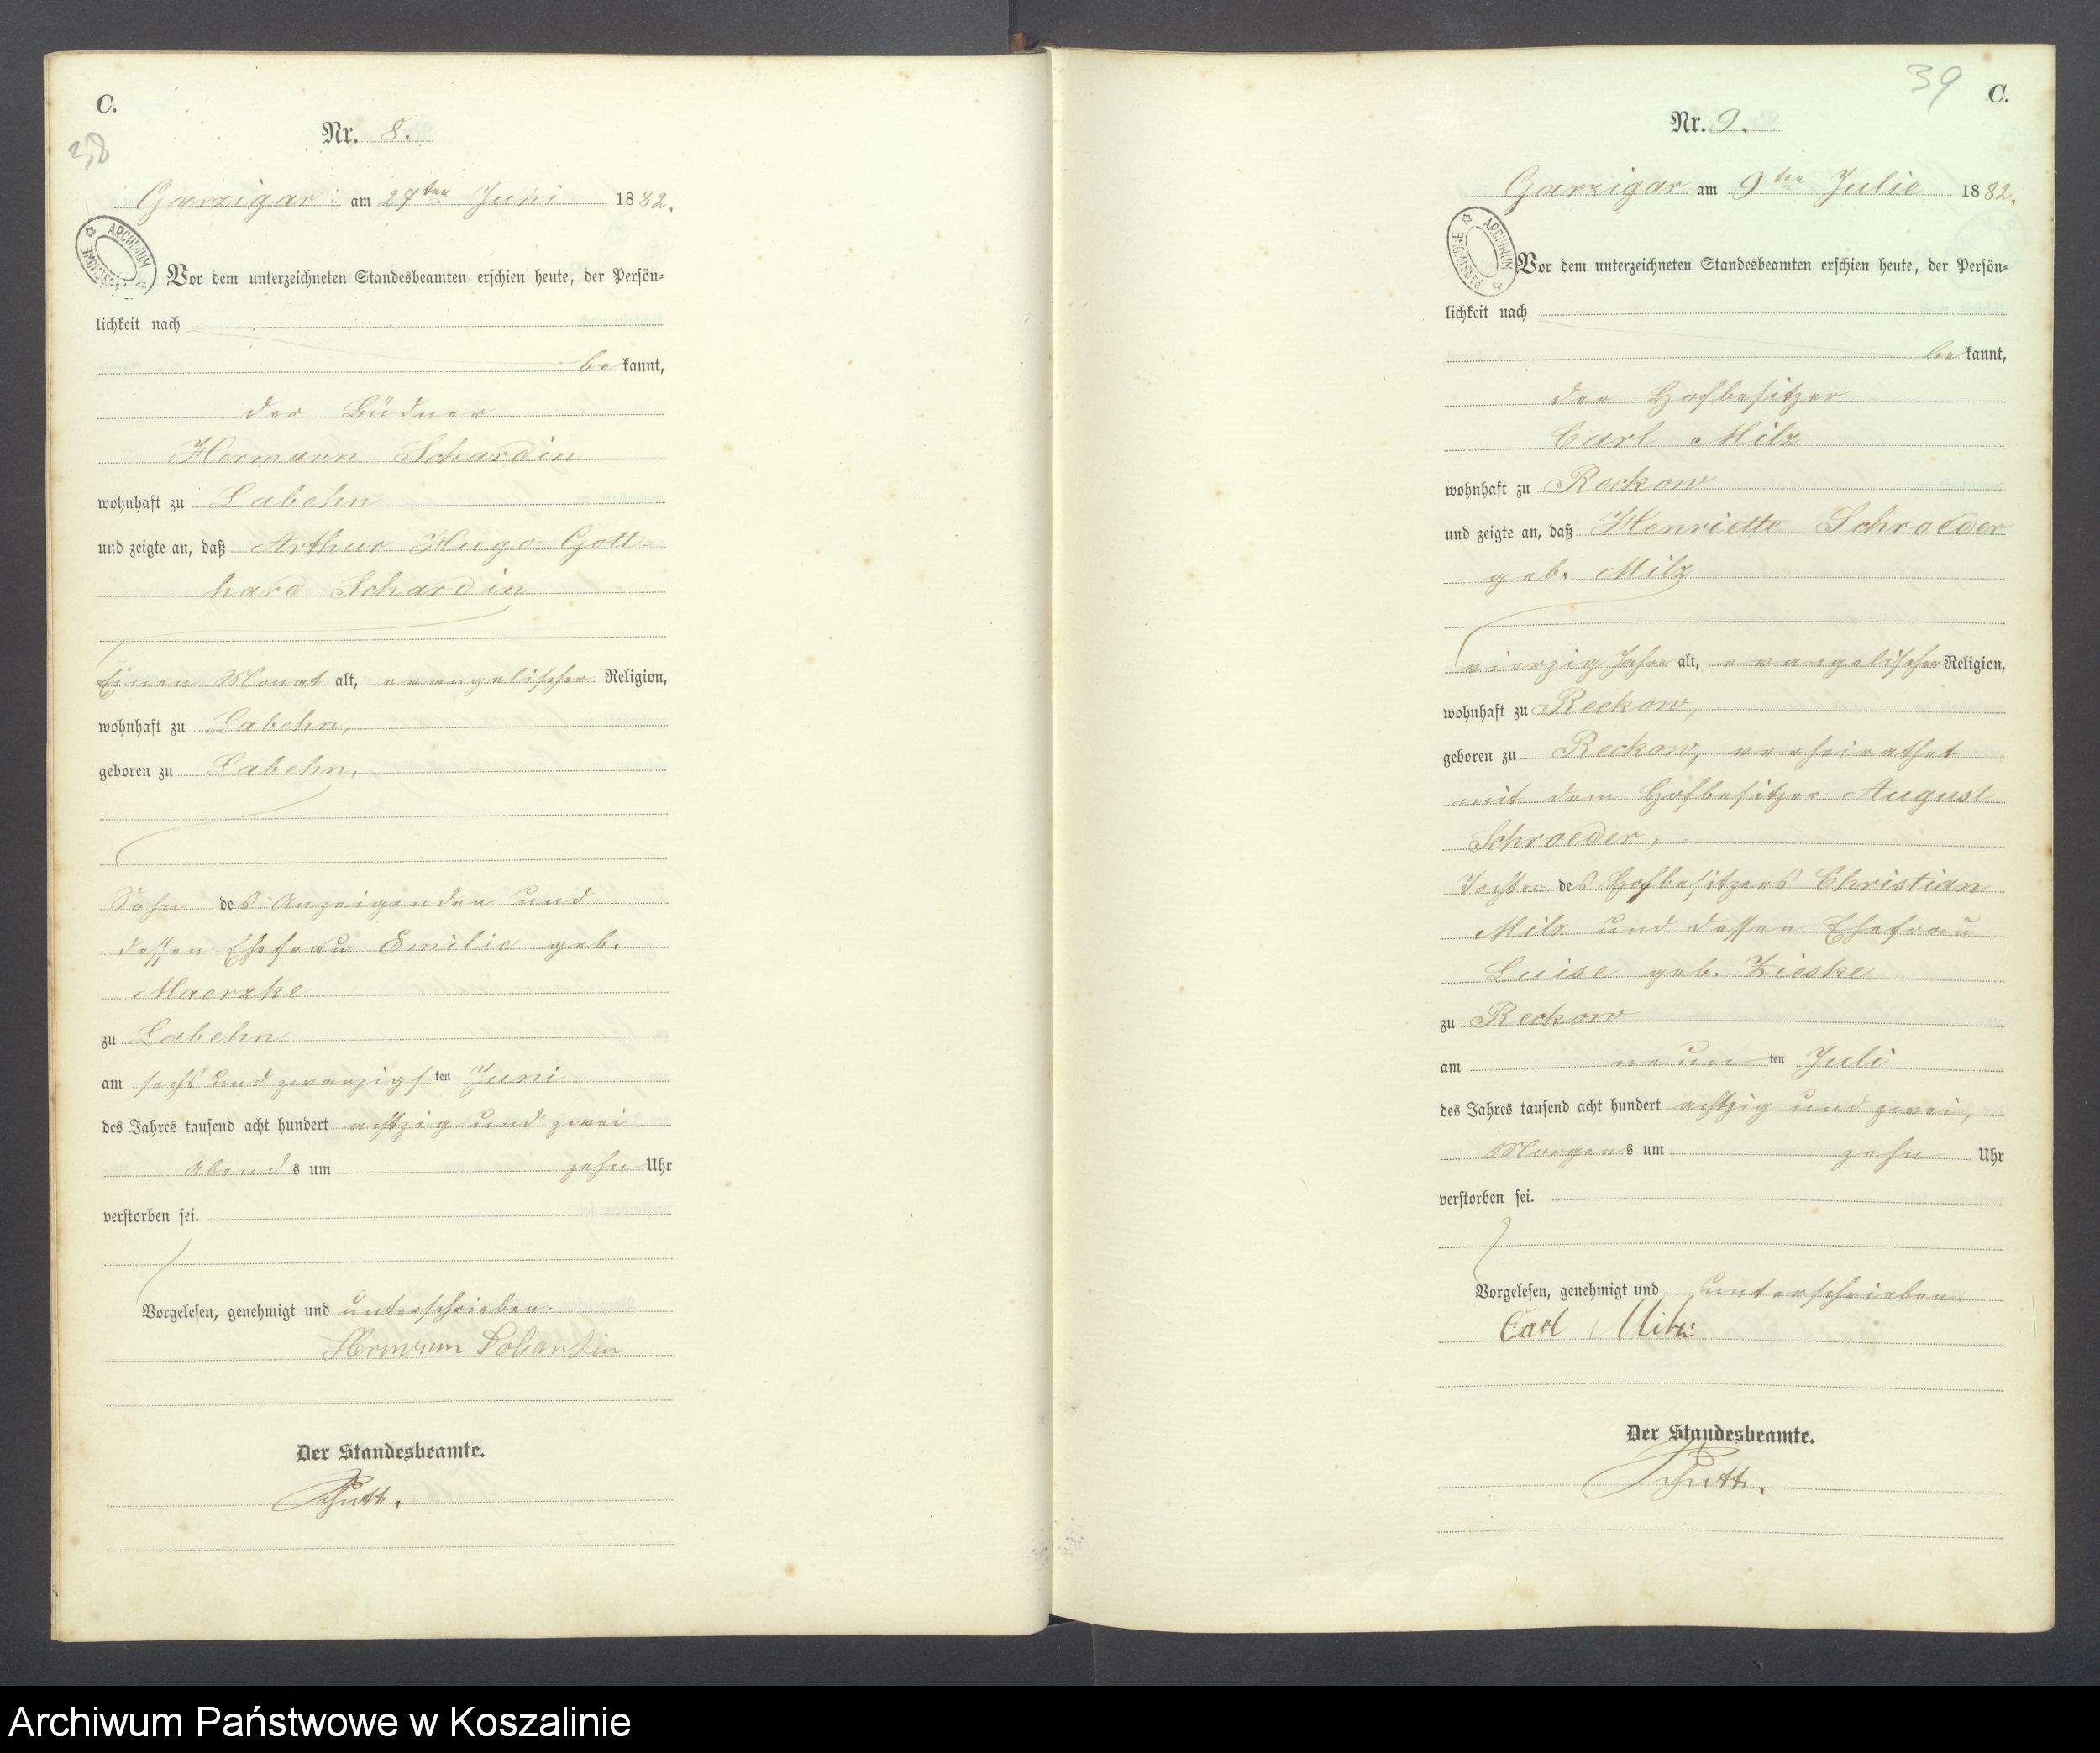 C.
38
Nr. 8.
Garzigar am 27ten Juni 1882.
ARCHIWUM PAŃSTWOWE
Vor dem unterzeichneten Standesbeamten erschien heute, der Persön-
lichkeit nach
bekannt,
der Büdner
Hermann Schardin
wohnhaft zu Labehn
und zeigte an, daß Arthur Hugo Gott-
hard Schardin
Einen Monat alt, evangelischer Religion,
wohnhaft zu Labehn,
geboren zu Labehn,
Sohn des Anzeigenden und
dessen Ehefrau Emilie geb.
Maerzke
zu Labehn
am sechs und zwanzigsten Juni
des Jahres tausend acht hundert achtzig und zwei
Abends um zehn Uhr
verstorben sei.
Vorgelesen, genehmigt und unterschrieben.
Hermann Schardin
Der Standesbeamte.
39
C.
Nr. 9.
Garzigar am 9ten Julie 1882.
ARCHIWUM PAŃSTWOWE
Vor dem unterzeichneten Standesbeamten erschien heute, der Persön-
lichkeit nach
bekannt,
der Hofbesitzer
Carl Milz
wohnhaft zu Reckow
und zeigte an, daß Henriette Schroeder
geb. Milz
vierzig Jahre alt, evangelischer Religion,
wohnhaft zu Reckow,
geboren zu Reckow, verheirathet
mit dem Hofbesitzer August
Schroeder,
Tochter des Hofbesitzers Christian
Milz und dessen Ehefrau
Luise geb. Zieske
zu Reckow
am neunten Juli
des Jahres tausend acht hundert achtzig und zwei,
Morgens um zehn Uhr
verstorben sei.
Vorgelesen, genehmigt und unterschrieben.
Carl Milz
Der Standesbeamte.
Archiwum Państwowe w Koszalinie